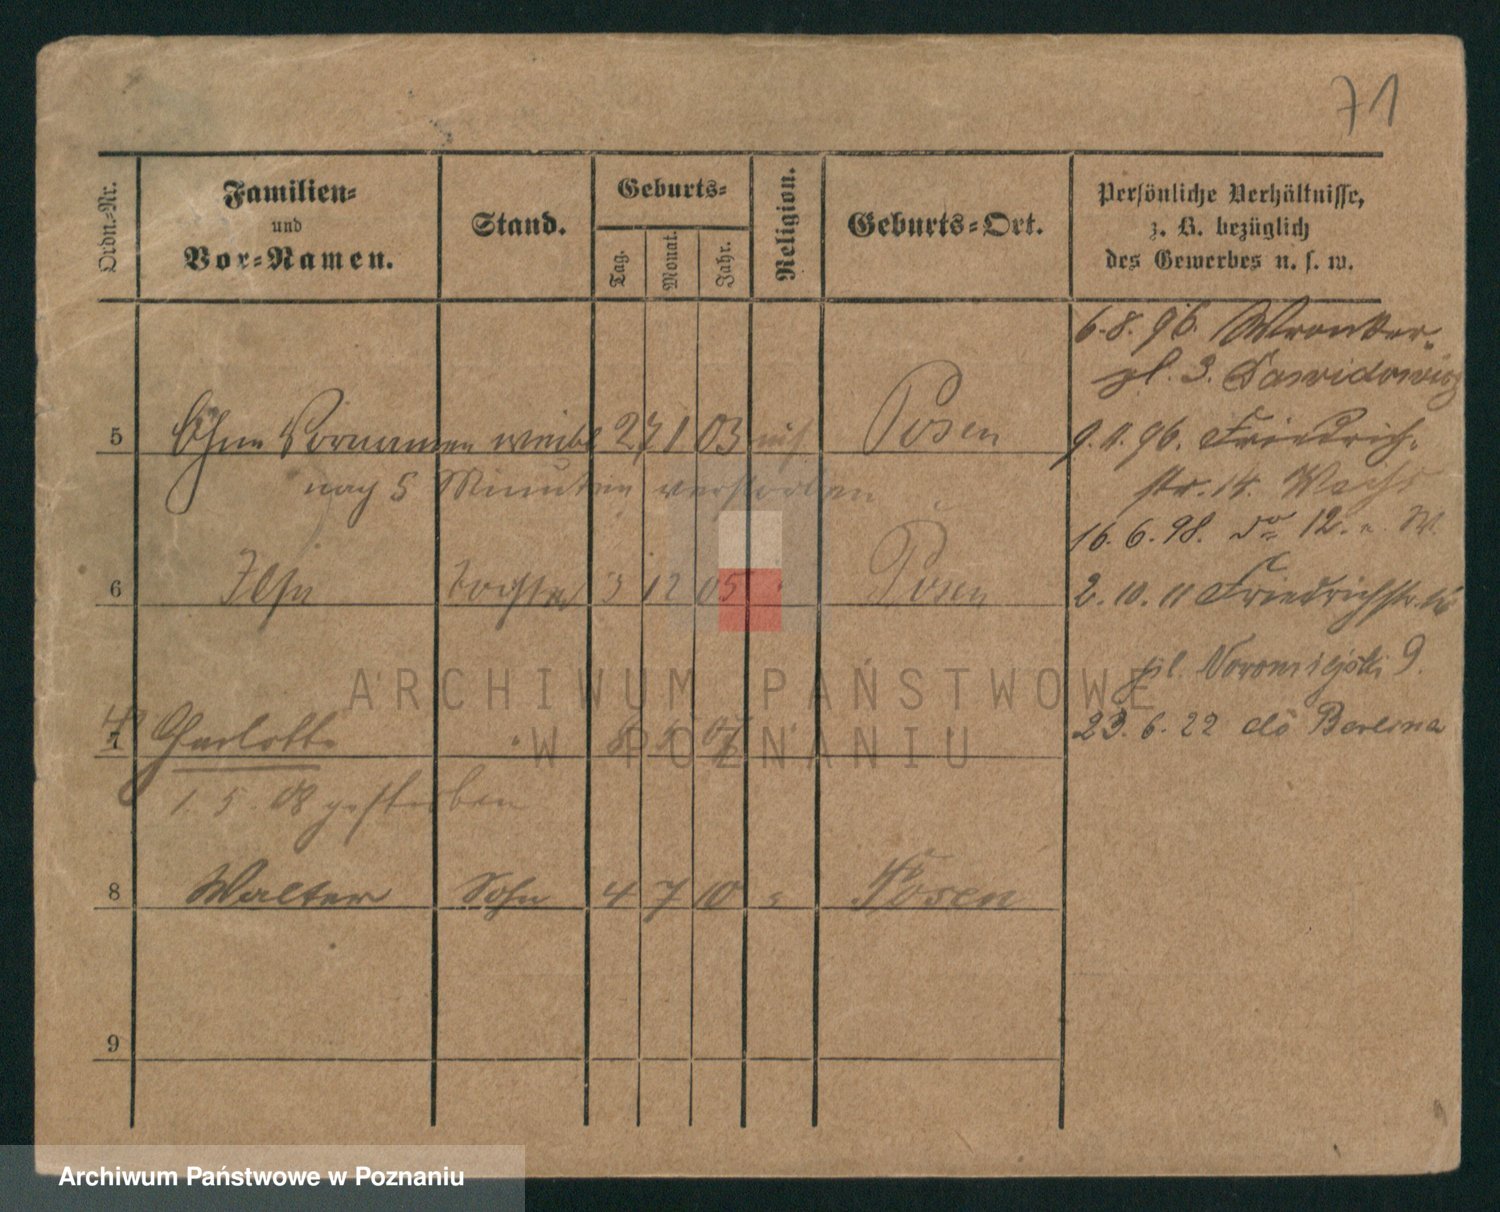 71
Ordn.-Nr.
Familien-
und
Vor-Namen.
Stand.
Geburts-
Tag.
Monat.
Jahr.
Religion.
Geburts-Ort.
Persönliche Verhältnisse,
z. B. bezüglich
des Gewerbes u. s. w.
6.8.96. Wronker-
pl. 3. Dawidowicz
5 Ohne Vornamen weibl 27 1 03 Posen
9.11.96. Friedrich-
nach 5 Minuten verstorben
str. 14. Wachs
16.6.98. do 12. W.
6 Ilse Tochter 3 12 05 Posen
2.10.11 Friedrichstr.
pl. Nowomiejski 9.
7 Charlotte 07
23.6.22 do Berlina
1.5.08 gestorben
8 Walter Sohn 4 7 10 Posen
9
ARCHIWUM PAŃSTWOWE
W POZNANIU
Archiwum Państwowe w Poznaniu